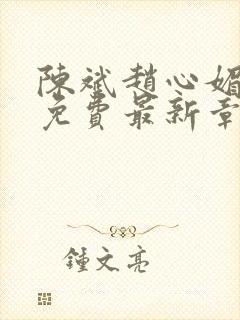 陳斌趙心媚
免費最新章
鍾文亮